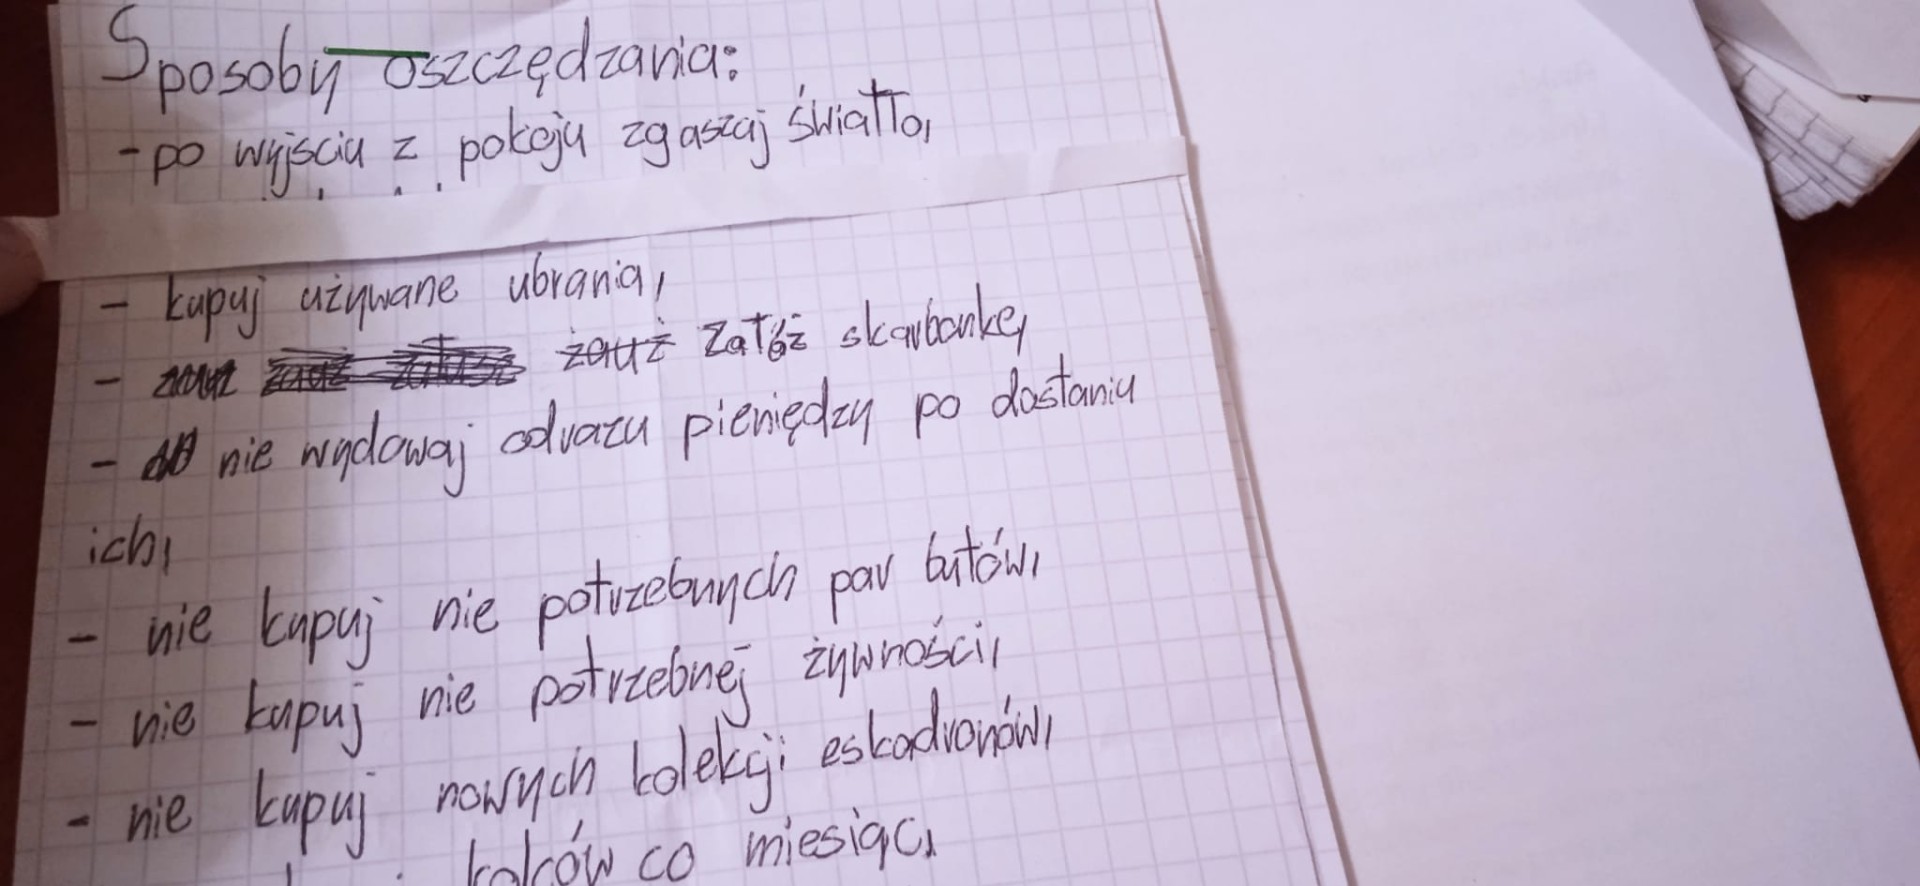 Sposoby oszczędzania:
- po wyjściu z pokoju zgaszaj światło,
- kupuj używane ubrania,
- żałuż Załóż skarbonkę,
- nie wydawaj odrazu pieniędzy po dostaniu
ich,
- nie kupuj nie potrzebnych par butów,
- nie kupuj nie potrzebnej żywności,
- nie kupuj nowych kolekcji eskadronów,
co miesiąc,